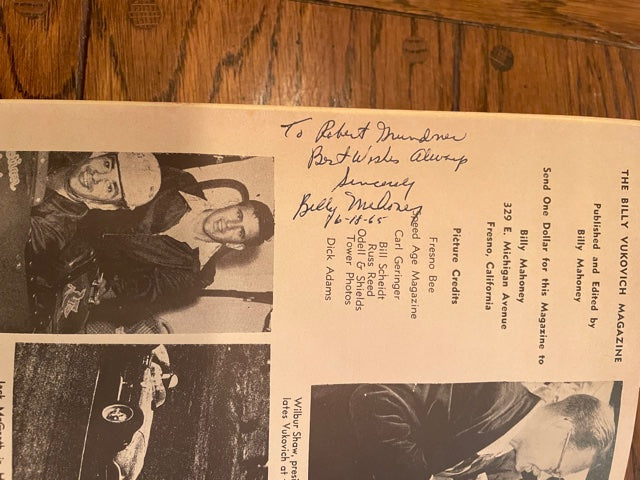 To Robert Mundner
Best Wishes Always
Sincerely
Billy Mahoney
6-18-65
THE BILLY VUKOVICH MAGAZINE
Published and Edited by
Billy Mahoney
Send One Dollar for this Magazine to
Billy Mahoney
329 E. Michigan Avenue
Fresno, California
Picture Credits
Fresno Bee
Speed Age Magazine
Carl Geringer
Bill Scheidt
Russ Reed
Odell & Shields
Tower Photos
Dick Adams
Wilbur Shaw, presi
lates Vukovich at
Jack McGrath in